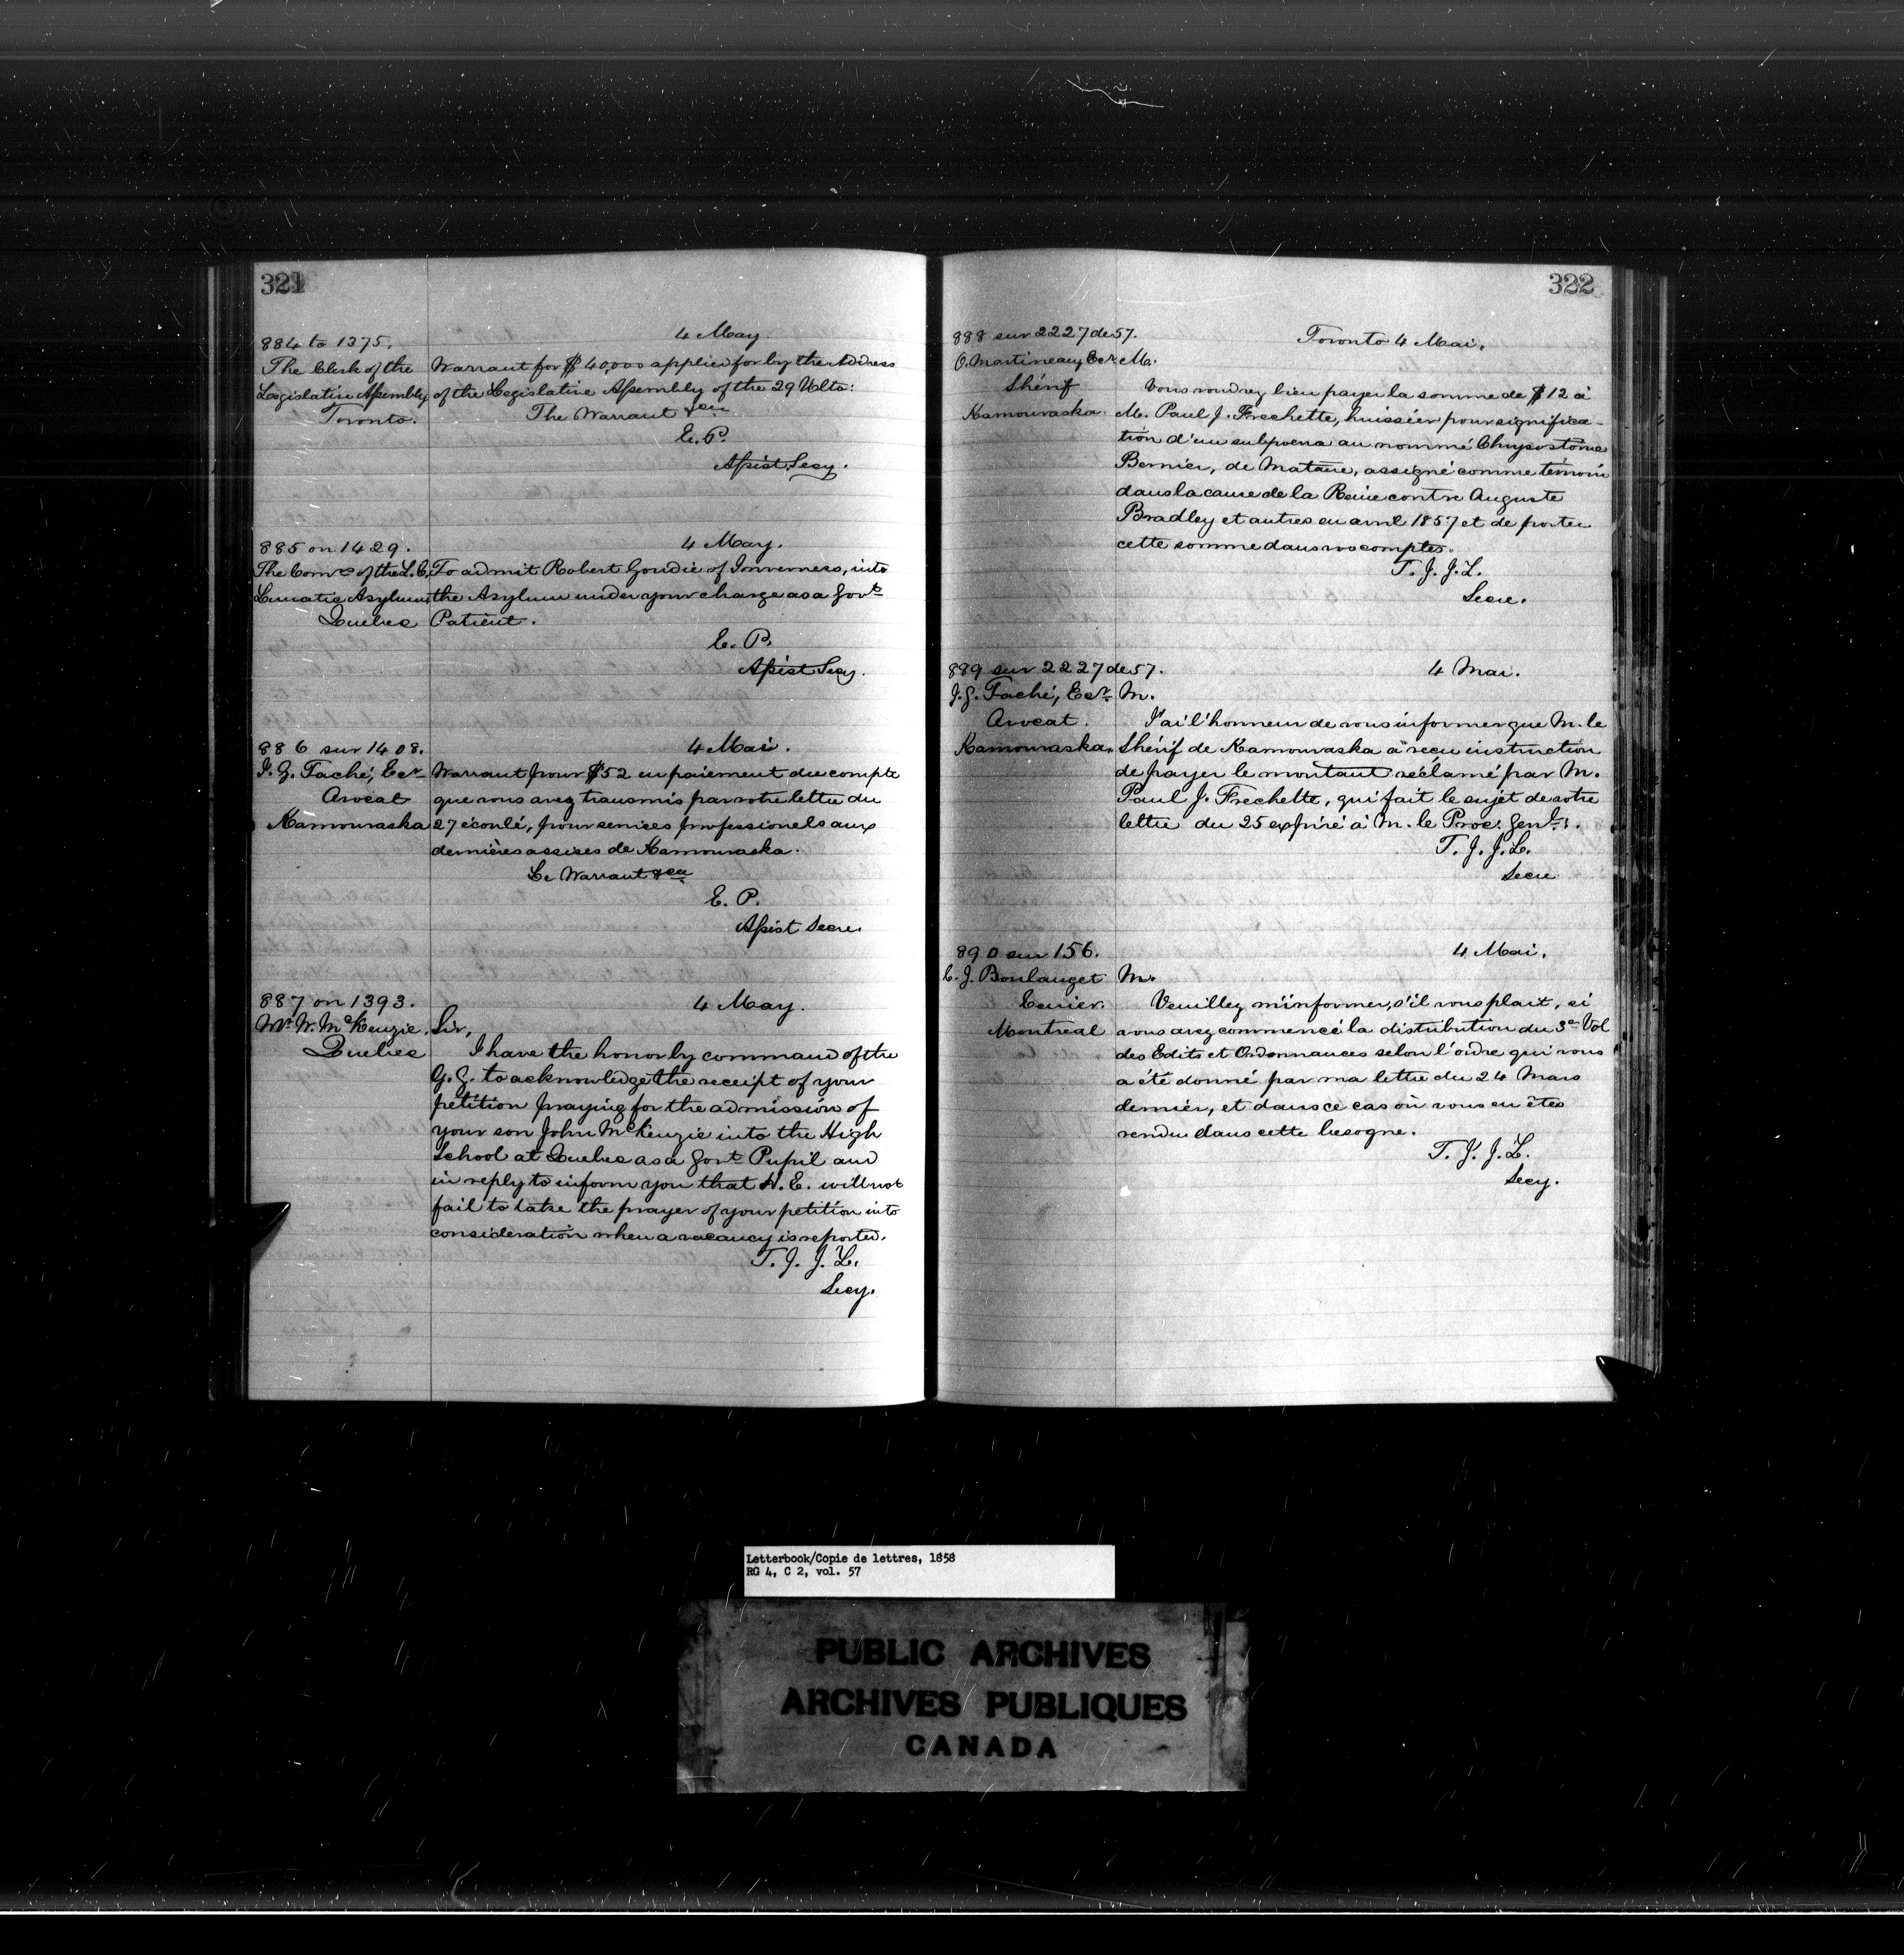 321
884 to 1375.
4 May
The Clerk of the
Legislative Assembly
Toronto.
Warrant for $40,000 applied for by the Address
of the Legislative Assembly of the 29 Ulto:
The Warrant &ca
E. P.
Assist Secy.
885 on 1429.
4 May.
The Comrs of the L. C.
Lunatic Asylum,
Quebec
To admit Robert Goudie of Inverness, into
the Asylum under your charge as a Govt
Patient.
E. P.
Assist Secy.
886 sur 1408.
4 Mai.
J. G. Taché, Ecr
Avocat
Kamouraska
Warrant pour $52 en paiement du compte
que vous avez transmis par votre lettre du
27 écoulé, pour services professionels aux
dernières assises de Kamouraska.
Le Warrant &ca
E. P.
Assist Secre.
887 on 1393.
4 May.
Mr W. McKenzie.
Quebec
Sir,
I have the honor by command of the
G. G. to acknowledge the receipt of your
petition praying for the admission of
your son John McKenzie into the High
School at Quebec as a Govt Pupil and
in reply to inform you that H. E. will not
fail to take the prayer of your petition into
consideration when a vacancy is reported.
T. J. J. L.
Secy.
322
888 sur 2227 de 57.
Toronto 4 Mai.
O. Martineau, Ecr
Shérif
Kamouraska.
M.
Vous voudrez bien payer la somme de $12 à
M. Paul J. Frechette, huissier pour significa-
tion d'un subpoena au nommé Chrysostôme
Bernier, de Matane, assigné comme témoin
dans la cause de la Reine contre Auguste
Bradley et autres en avril 1857 et de porter
cette somme dans vos comptes.
T. J. J. L.
Secre.
889 sur 2227 de 57.
4 Mai.
J. G. Taché, Ecr
Avocat.
Kamouraska.
M.
J'ai l'honneur de vous informer que M. le
Shérif de Kamouraska a reçu instruction
de payer le montant réclamé par M.
Paul J. Frechette, qui fait le sujet de votre
lettre du 25 expiré à M. le Proc: Genl:.
T. J. J. L.
Secre
890 sur 156.
4 Mai.
L. J. Boulanget
Ecuier.
Montreal
M.
Veuillez m'informer, s'il vous plait, si
vous avez commencé la distribution du 3e Vol
des Edits et Ordonnances selon l'ordre qui vous
a été donné par ma lettre du 24 Mars
dernier, et dans ce cas où vous en êtes
rendu dans cette besogne.
T. J. J. L.
Secy.
Letterbook/Copie de lettres, 1858
RG 4, C 2, vol. 57
PUBLIC ARCHIVES
ARCHIVES PUBLIQUES
CANADA